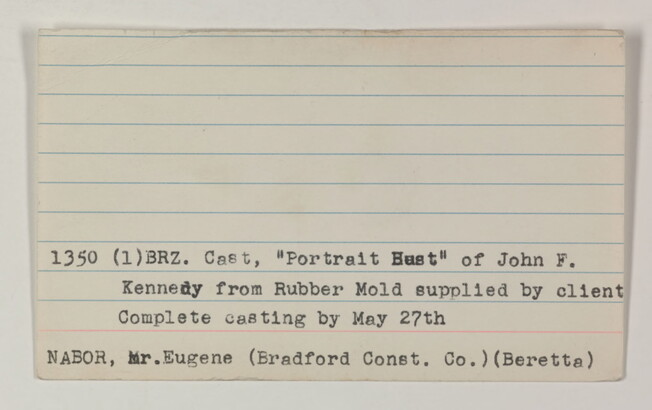 1350 (1)BRZ. Cast, "Portrait Bust" of John F.
Kennedy from Rubber Mold supplied by client
Complete casting by May 27th
NABOR, Mr.Eugene (Bradford Const. Co.)(Beretta)